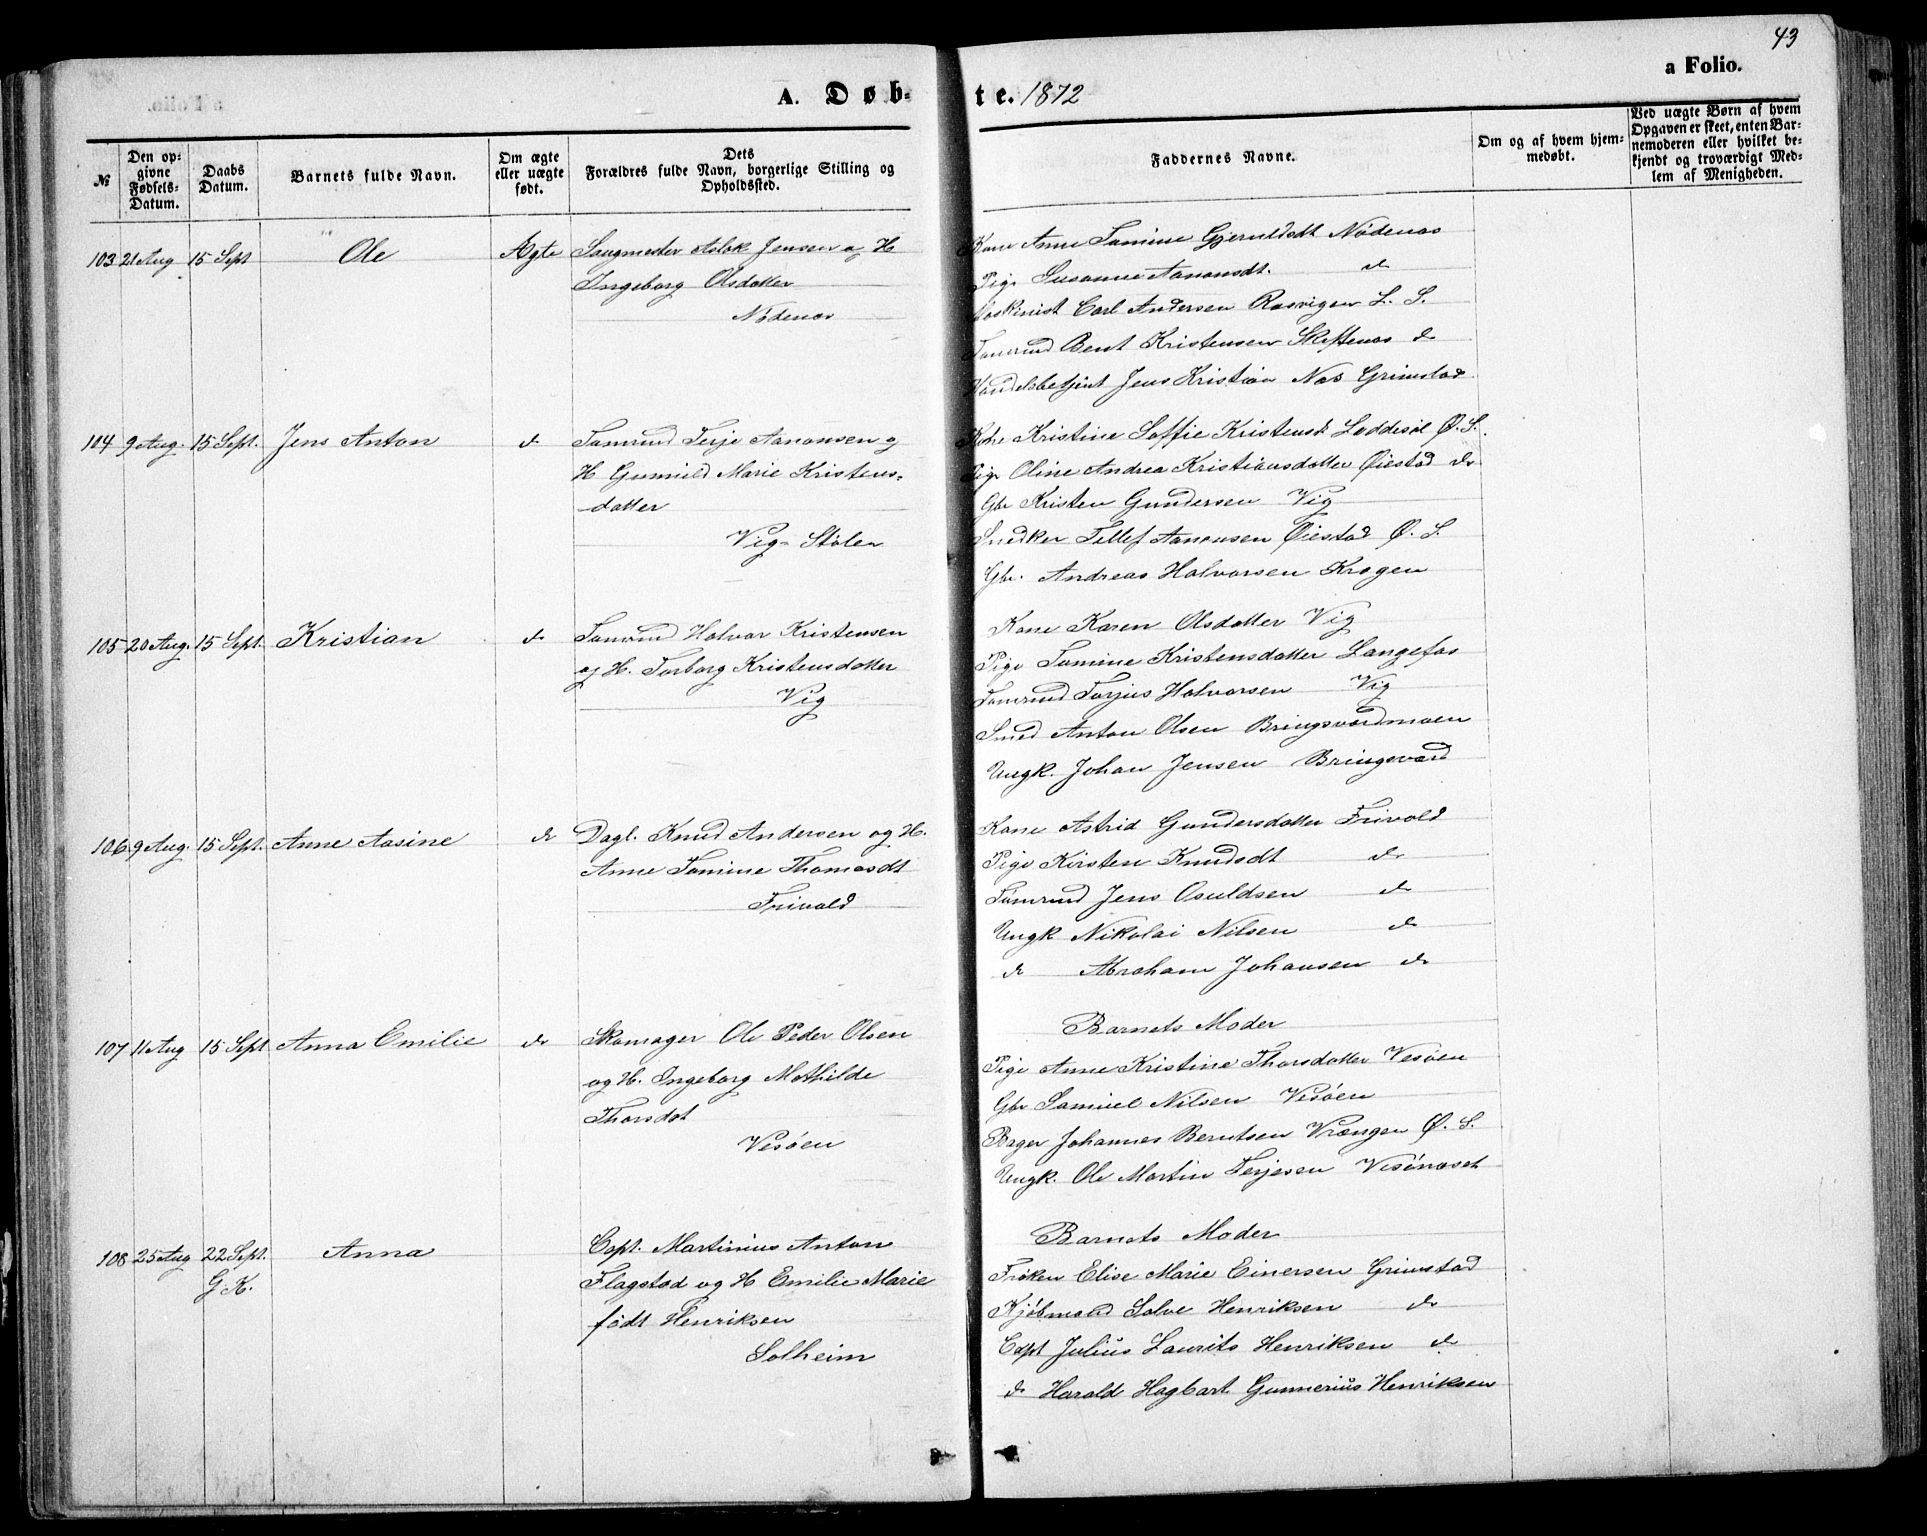 43
a Folio.
A. Døb-
te. 1872
№
Den op-
givne
Fødsels-
Datum.
Daabs
Datum.
Barnets fulde Navn.
Om ægte
eller uægte
født.
Dets
Forældres fulde Navn, borgerlige Stilling og
Opholdssted.
Faddernes Navne.
Om og af hvem hjem-
medøbt.
Ved uægte Børn af hvem
Opgaven er skeet, enten Bar-
nemoderen eller hvilket be-
kjendt og troværdigt Med-
lem af Menigheden.
103 21 Aug 15 Sept Ole Ægte Saugmester Aslak Jensen og H
Ingeborg Olsdatter
Nødenæs
Kone Anne Tomine Gjeruldsdt Nødenæs
Pige Susanne Aanonsdt. do
Maskinist Carl Andersen Rasvigen L. S.
Tømrmd Bent Kristensen Skeftenæs do
Handelsbetjent Jens Kristian Næs Grimstad
104 9 Aug. 15 Sept. Jens Anton do Tømrmd Terje Aanonsen og
H Gunnild Marie Kristens-
datter
Vig-Stølen
Kone Kristine Soffie Kristensdt Loddesøl Ø. S.
Pige Oline Andrea Kristiansdatter Øiestad do
Gbr Kristen Gundersen Vig
Snedker Tellef Aanonsen Øiestad Ø. S.
Gbr. Andreas Halvorsen Krogen
105 20 Aug. 15 Sept. Kristian do Tømrmd Halvor Kristensen
og H. Torborg Kristensdatter
Vig
Kone Karen Olsdatter Vig
Pige Tomine Kristensdatter Langefos
Tømrmd Torjus Halvorsen Vig
Smed Anton Olsen Bringsværdmoen
Ungk. Johan Jensen Bringsværd
106 9 Aug. 15 Sept. Anne Aasine do Dagl. Knud Andersen og H.
Anne Tomine Thomasdt
Frivold
Kone Astrid Gundersdatter Frivold
Pige Kirsten Knudsdt do
Tømrmd Jens Osuldsen do
Ungk Nikolai Nilsen do
do Abraham Johansen do
107 11 Aug 15 Sept Anna Emilie do Skomager Ole Peder Olsen
og H. Ingeborg Mathilde
Thorsdat
Vesøen
Barnets Moder
Pige Anne Kristine Thorsdatter Vesøen
Gbr Samuel Nilsen Vesøen
Bager Johannes Berntsen Vrængen Ø. S.
Ungk. Ole Martin Terjesen Vesønæset
108 25 Aug 22 Sept.
G. K.
Anna
Capt. Martinius Anton
Flagstad og H Emilie Marie
født Henriksen
Solheim
Barnets Moder
Frøken Elise Marie Einersen Grimstad
Kjøbmand Salve Henriksen do
Capt Julius Laurits Henriksen do
do Harald Hagbart Gunnerius Henriksen